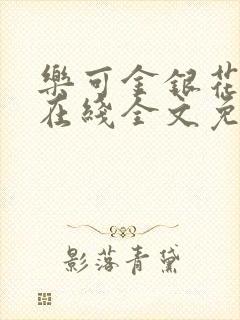 樂可金銀花
在綫全文免
影落青黛